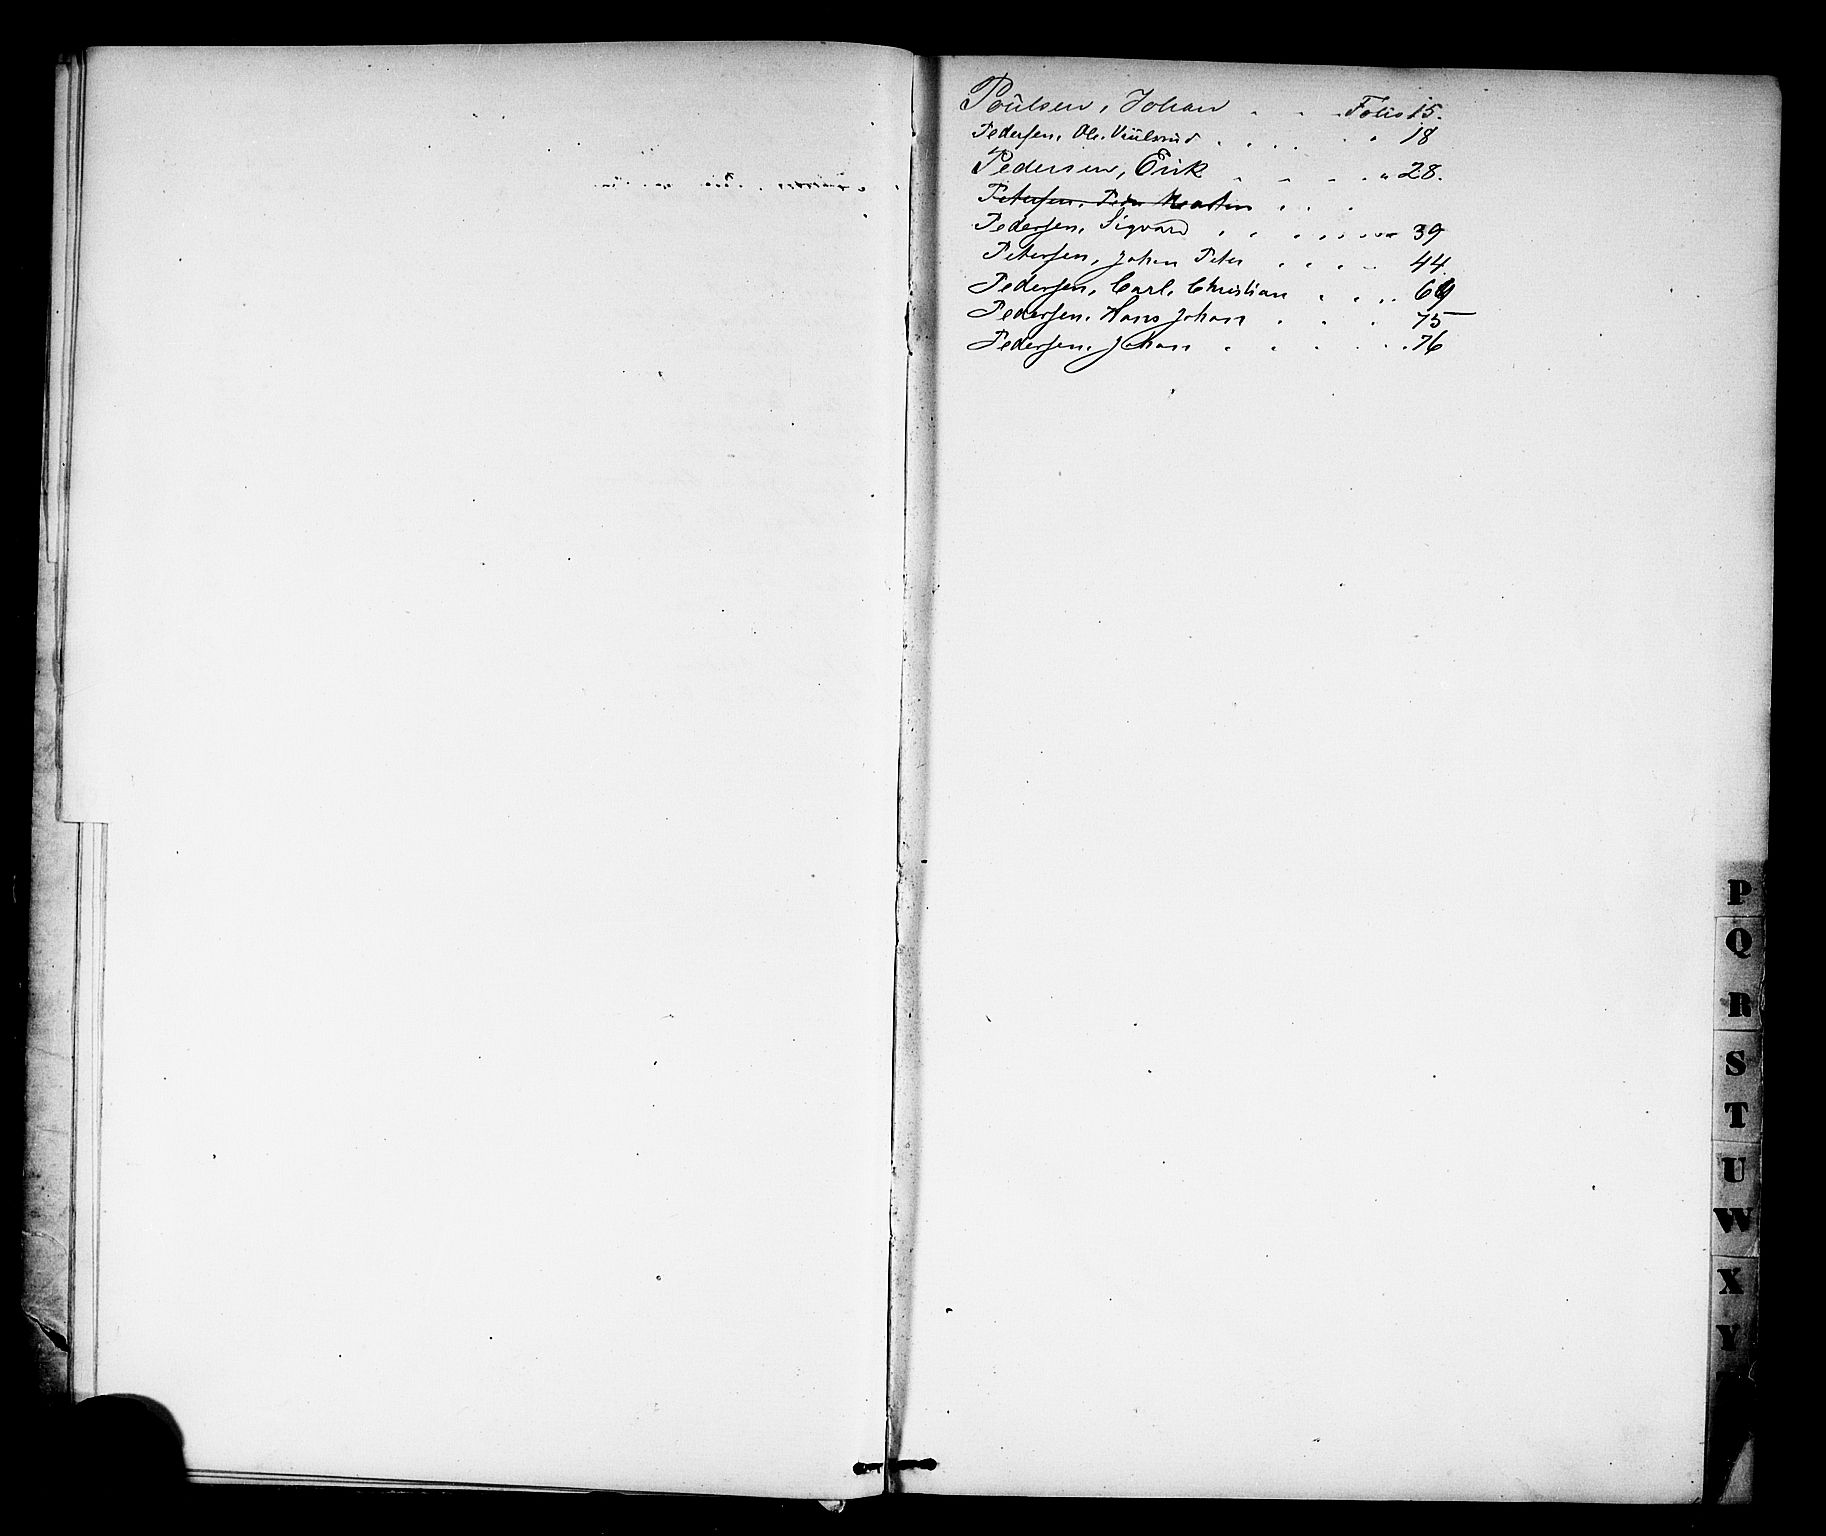 Poulsen, Johan . . . Folio 15.
Pedersen, Ole. . . . . . . 18
Pedersen, Erik . . . . " 28.
Petersen, Peder Martin . . .
Pedersen, Sigvard . . . . . . . 39
Petersen, Johan Peter . . . . 44
Pedersen, Carl, Christian . . . . 69
Pedersen, Hans Johan . . . 75
Pedersen, Johan . . . . . . 76
P
Q
R
S
T
U
W
X
Y